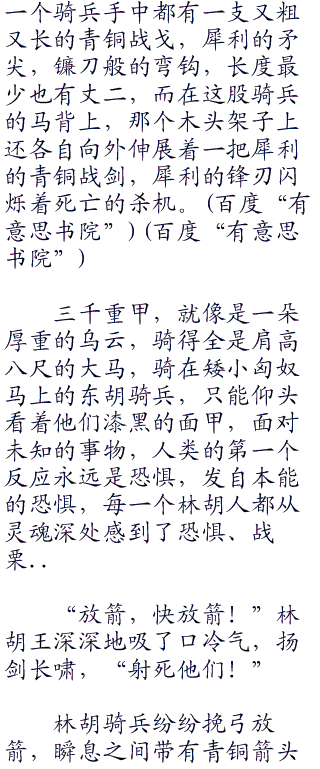 一个骑兵手中都有一支又粗
又长的青铜战戈，犀利的矛
尖，镰刀般的弯钩，长度最
少也有丈二，而在这股骑兵
的马背上，那个木头架子上
还各自向外伸展着一把犀利
的青铜战剑，犀利的锋刃闪
烁着死亡的杀机。(百度“有
意思书院”)(百度“有意思
书院”)
三千重甲，就像是一朵
厚重的乌云，骑得全是肩高
八尺的大马，骑在矮小匈奴
马上的东胡骑兵，只能仰头
看着他们漆黑的面甲，面对
未知的事物，人类的第一个
反应永远是恐惧，发自本能
的恐惧，每一个林胡人都从
灵魂深处感到了恐惧、战
栗..
“放箭，快放箭！”林
胡王深深地吸了口冷气，扬
剑长啸，“射死他们！”
林胡骑兵纷纷挽弓放
箭，瞬息之间带有青铜箭头